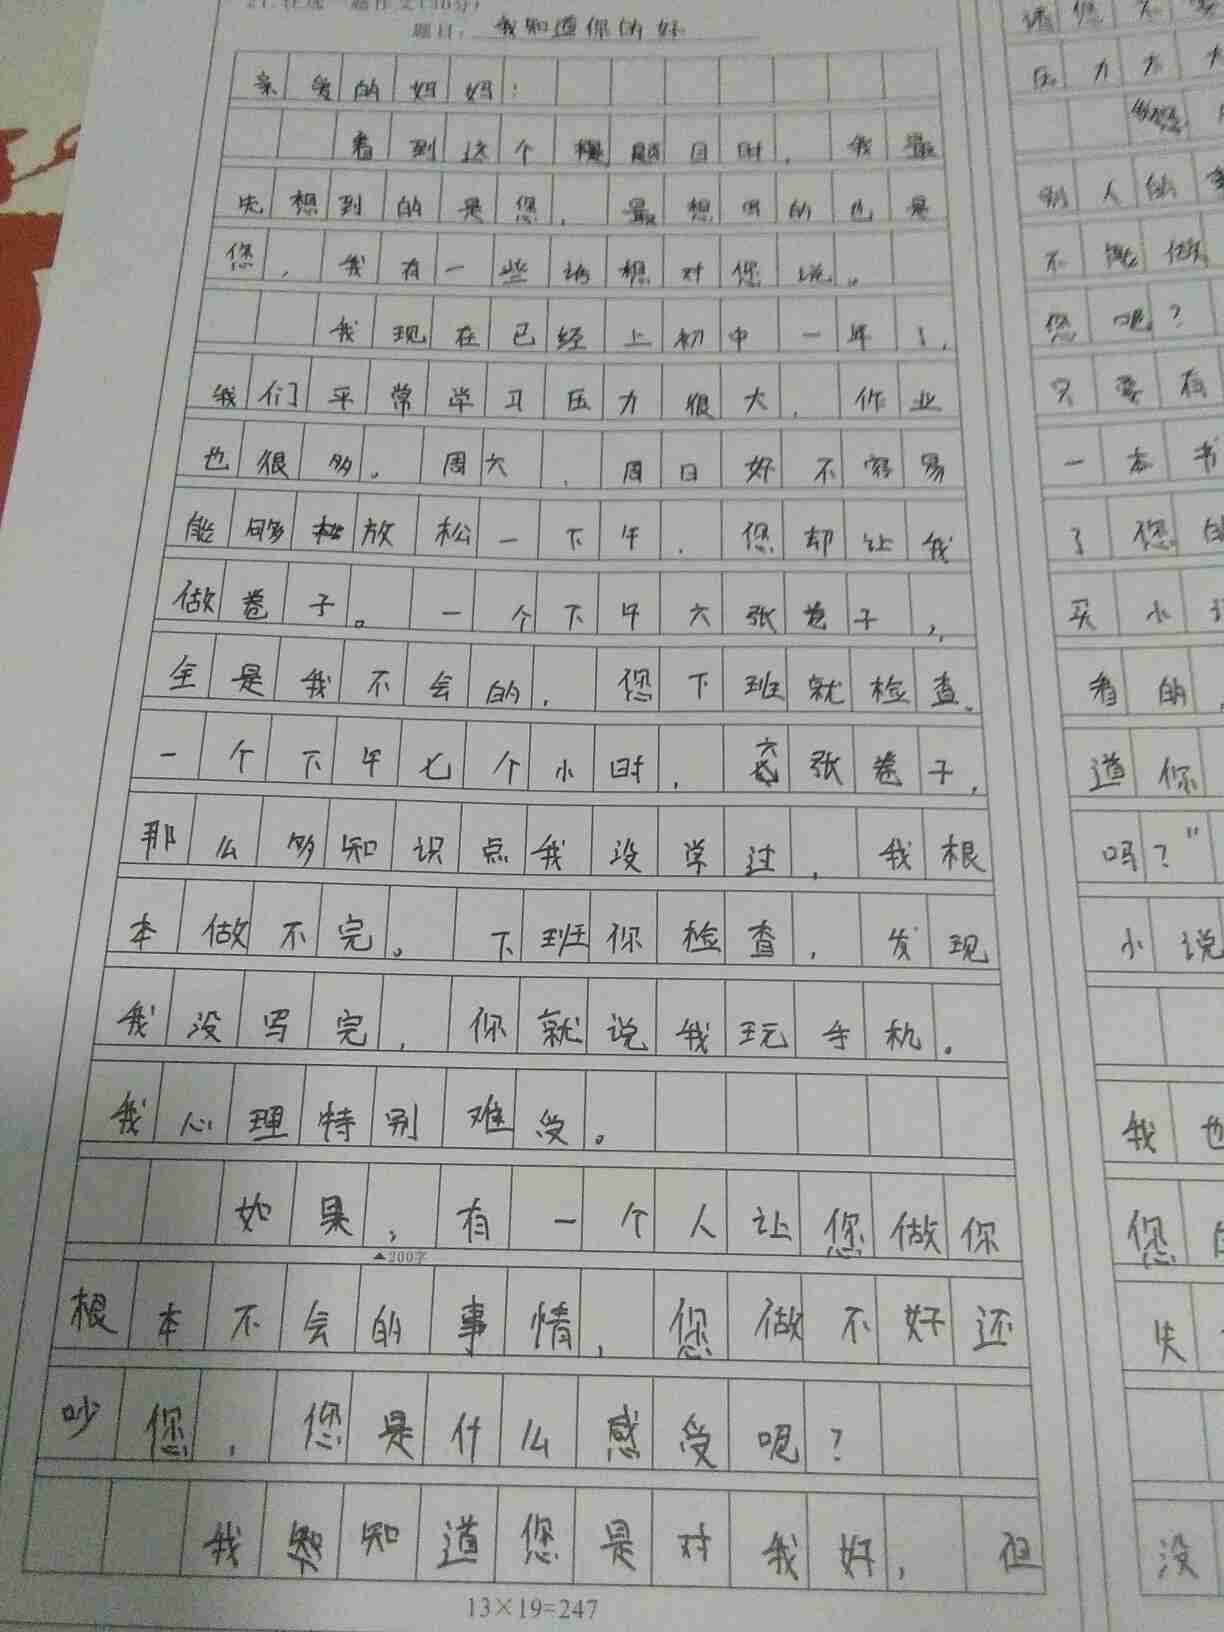 题目：我知道你的好
亲爱的妈妈：
看到这个题目时，我最
先想到的是您，最想写的也是
您，我有一些话想对您说。
我现在已经上初中一年了，
我们平常学习压力很大，作业
也很多。周六、周日好不容易
能够放松一下午，您却让我
做卷子。一个下午六张卷子，
全是我不会的，您下班就检查。
一个下午七个小时，六张卷子，
那么多知识点我没学过，我根
本做不完。下班你检查，发现
我没写完，你就说我玩手机。
我心理特别难受。
如果，有一个人让您做你
▲200字
根本不会的事情，您做不好还
吵您，您是什么感受呢？
我知道您是对我好，但
13×19=247
请您不要
压力太大
您
别人的
不做
您呢？
只要有
一本书
了您
买小
看的，
道你
吗？"
小说
我也
您
失
没